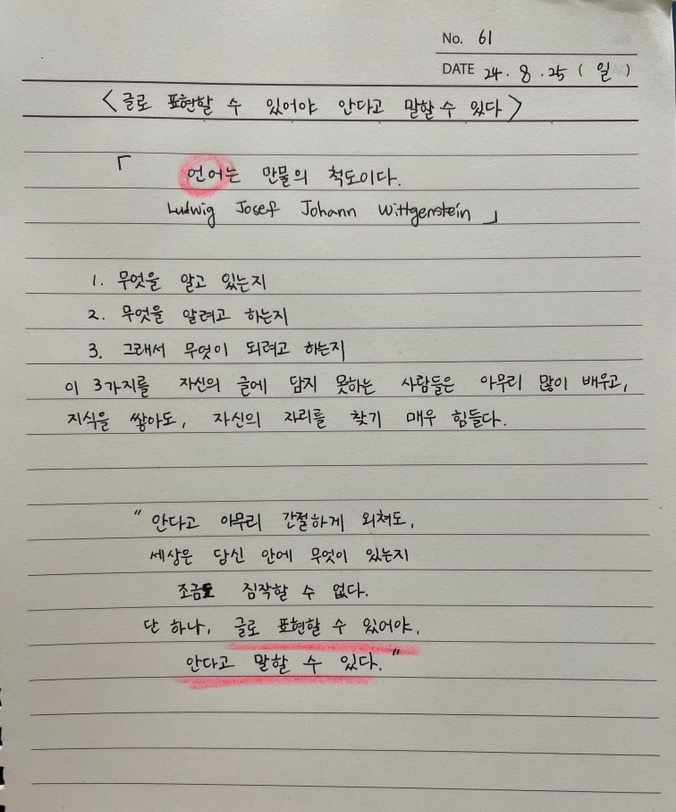 No. 61
DATE 24. 8. 25 ( 일 )
< 글로 표현할 수 있어야 안다고 말할 수 있다 >
「 언어는 만물의 척도이다.
Ludwig Josef Johann Wittgenstein 」
1. 무엇을 알고 있는지
2. 무엇을 알려고 하는지
3. 그래서 무엇이 되려고 하는지
이 3가지를 자신의 글에 담지 못하는 사람들은 아무리 많이 배우고,
지식을 쌓아도, 자신의 자리를 찾기 매우 힘들다.
" 안다고 아무리 간절하게 외쳐도,
세상은 당신 안에 무엇이 있는지
조금도 짐작할 수 없다.
단 하나, 글로 표현할 수 있어야,
안다고 말할 수 있다. "